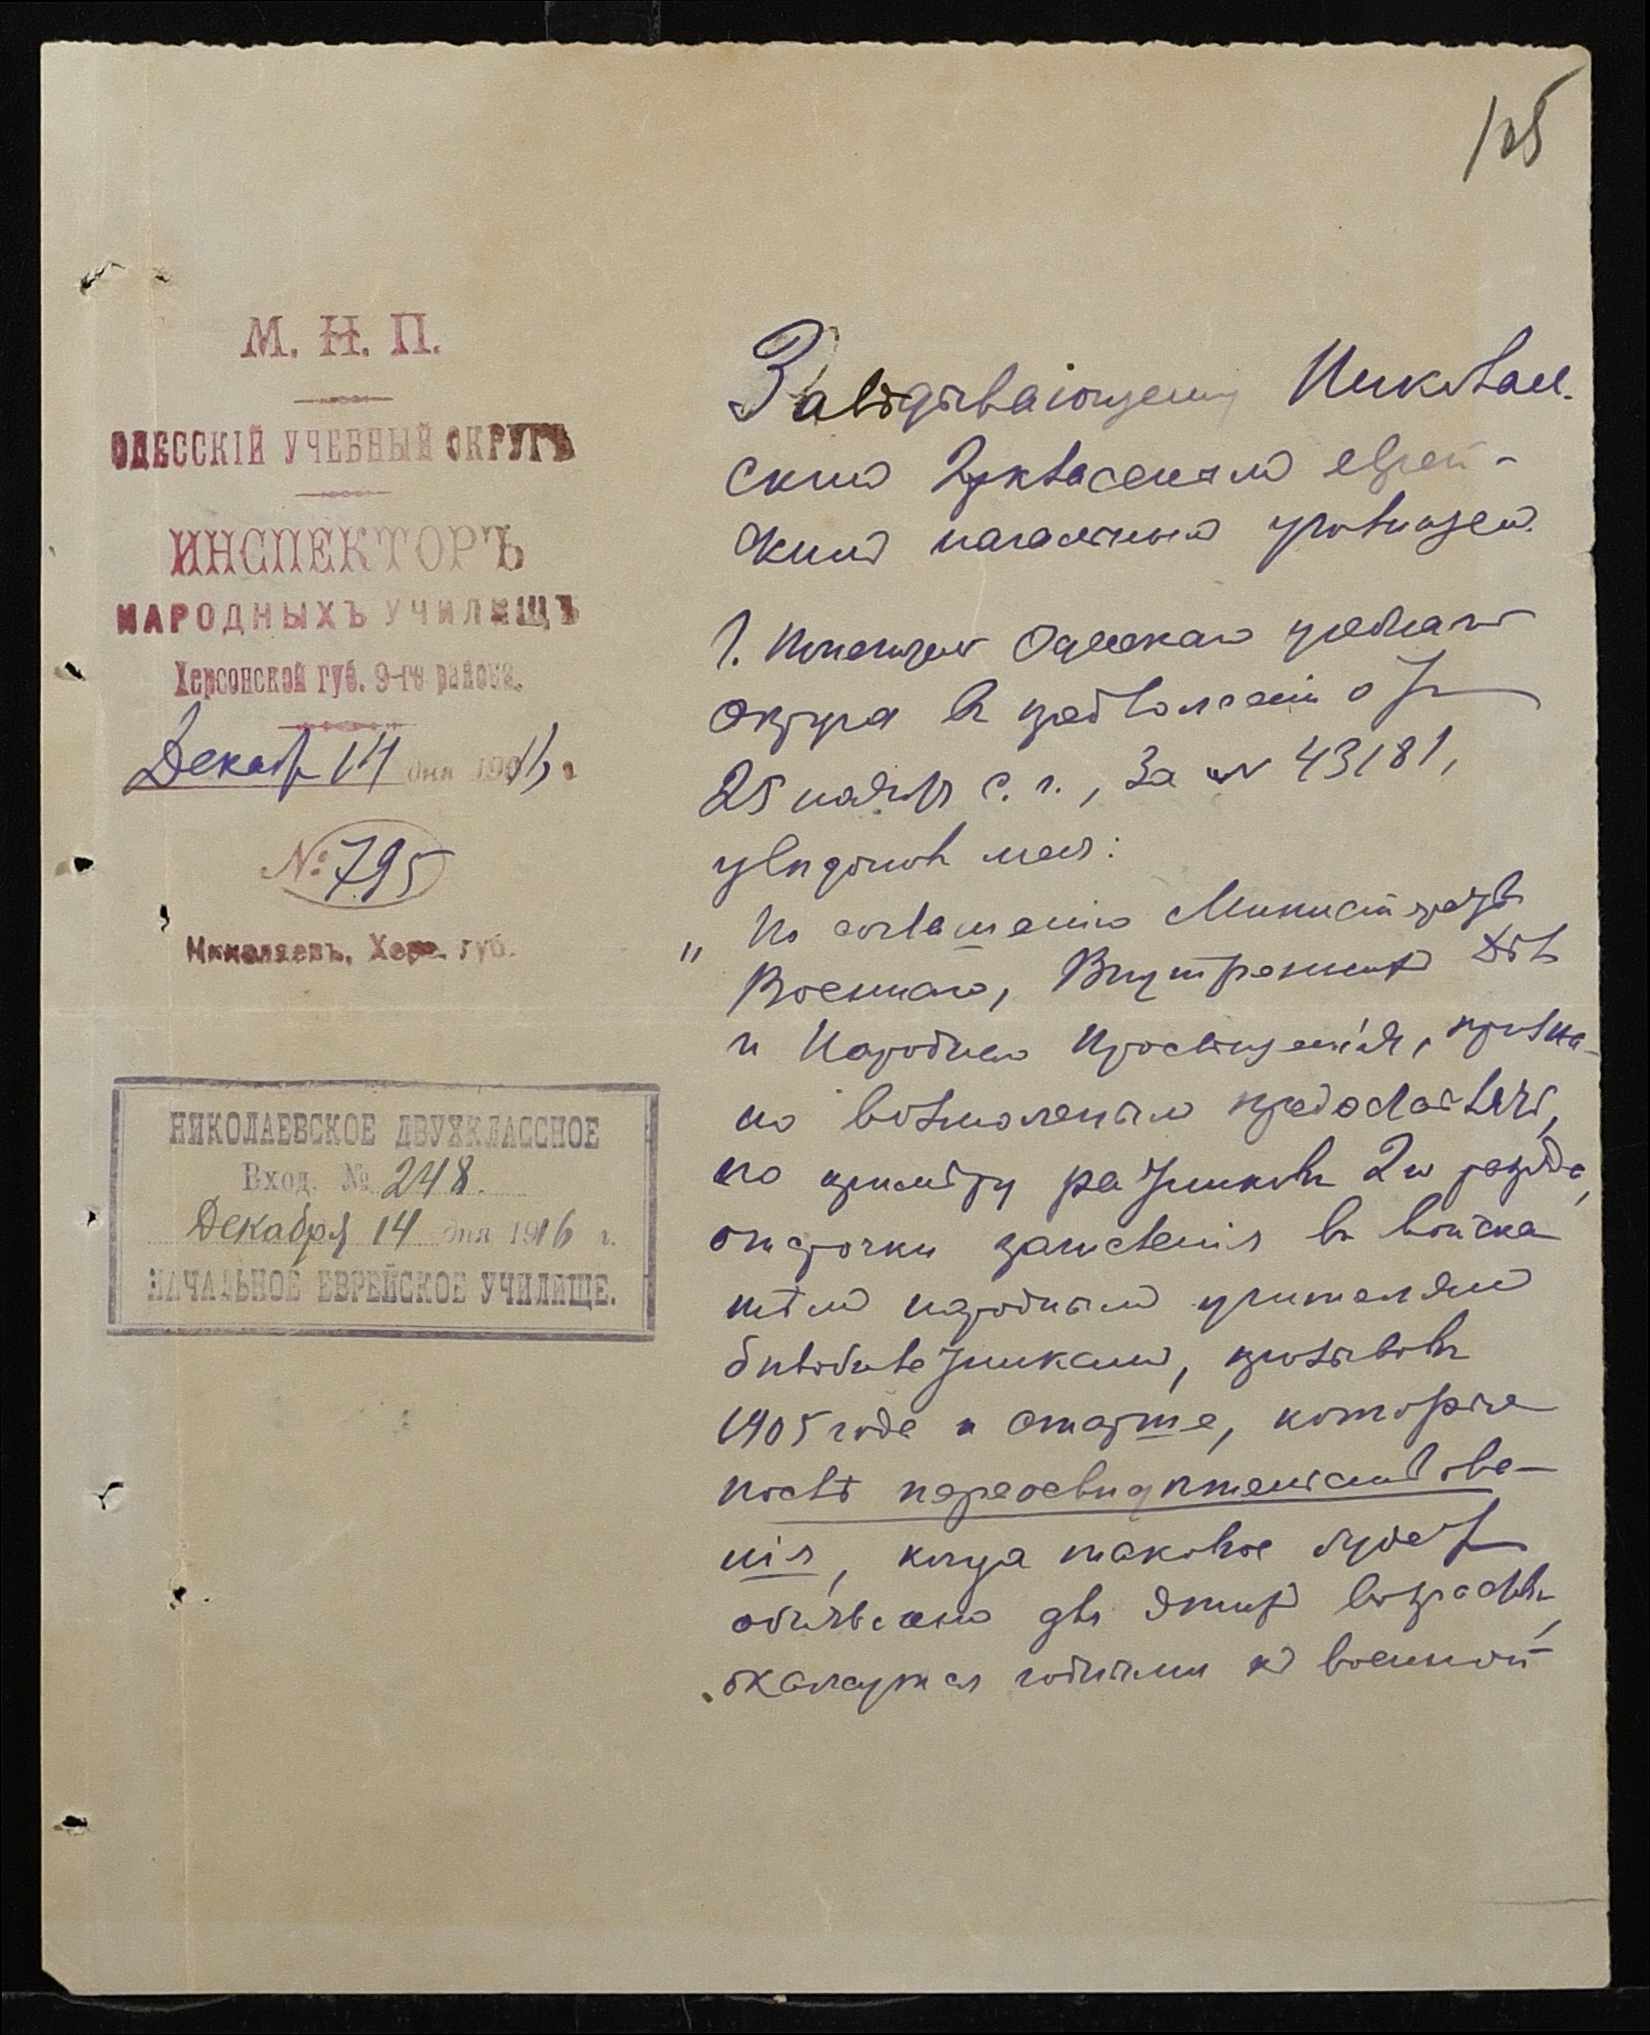 125
М. Н. П.
ОДЕССКІЙ УЧЕБНЫЙ ОКРУГЪ
ИНСПЕКТОРЪ
НАРОДНЫХЪ УЧИЛИЩЪ
Херсонской губ. 9-го района.
Декабр 14 дня 1916 г.
№ 795
Николаевъ, Херс. губ.
НИКОЛАЕВСКОЕ ДВУХКЛАССНОЕ
Вход. № 248.
Декабря 14 дня 1916 г.
НАЧАЛЬНОЕ ЕВРЕЙСКОЕ УЧИЛИЩЕ.
Завѣдывающему Николаев-
скимъ 2хкласснымъ еврей-
скимъ начальнымъ училищемъ.
Г. Попечитель Одесскаго учебнаго
округа въ предложеніи отъ
25 ноября с. г., за № 43181,
увѣдомилъ меня:
„По соглашенію Министерствъ
Военнаго, Внутреннихъ Дѣлъ
и Народнаго Просвѣщенія, призна-
но возможнымъ предоставить,
по примѣру ратниковъ 2го разряда,
отсрочки зачисленія въ войска
тѣмъ народнымъ учителямъ
бѣлобилетникамъ, призывовъ
1905 года и старше, которые
послѣ переосвидѣтельствова-
нія, когда таковое будетъ
объявлено для этихъ возрастовъ,
окажутся годными къ военной